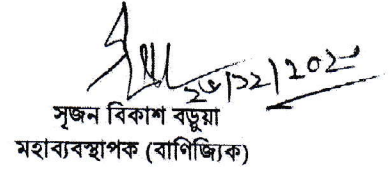 ২৮/১২/২০২০
সৃজন বিকাশ বড়ুয়া
মহাব্যবস্থাপক (বাণিজ্যিক)